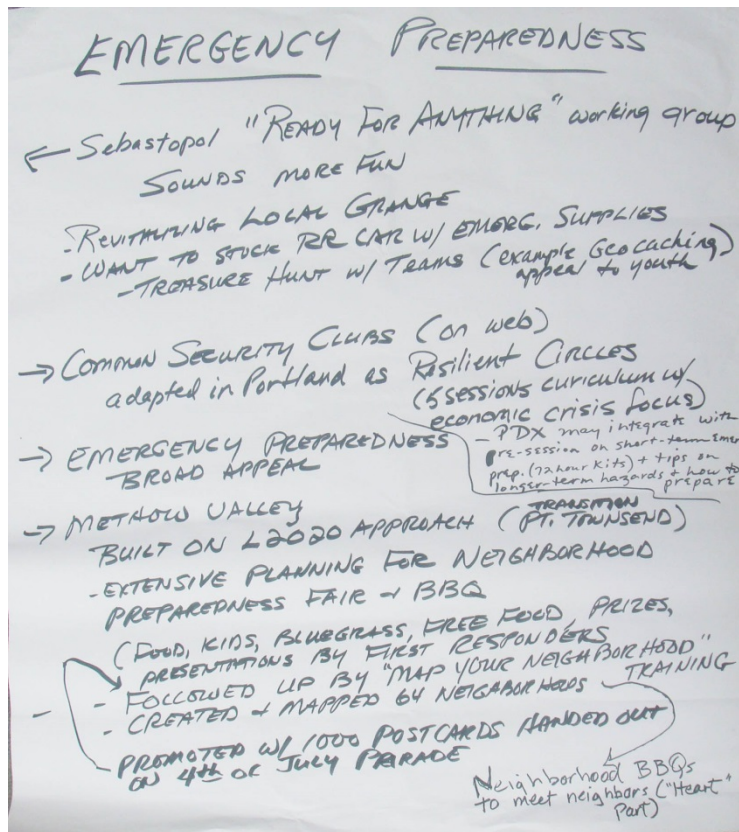 EMERGENCY PREPAREDNESS
← Sebastopol "READY FOR ANYTHING" working group
SOUNDS MORE FUN
- REVITALIZING LOCAL GRANGE
- WANT TO STOCK RR CAR W/ EMERG. SUPPLIES
- TREASURE HUNT W/ TEAMS (example Geocaching)
appeal to youth
→ COMMON SECURITY CLUBS (on web)
adapted in Portland as Resilient CIRCLES
(5 sessions curiculum w/
economic crisis focus)
- PDX may integrate with
pre-session on short-term emer
prep. (72 hour kits) + tips on
longer-term hazards + how to
prepare
→ EMERGENCY PREPAREDNESS
BROAD APPEAL
→ METHOW VALLEY
TRANSITION
BUILT ON L2020 APPROACH (PT. TOWNSEND)
- EXTENSIVE PLANNING FOR NEIGHBORHOOD
PREPAREDNESS FAIR + BBQ
(FOOD, KIDS, BLUEGRASS, FREE FOOD, PRIZES,
PRESENTATIONS BY FIRST RESPONDERS
- FOLLOWED UP BY "MAP YOUR NEIGHBORHOOD"
TRAINING
- CREATED + MAPPED 64 NEIGHBORHOODS
- PROMOTED W/ 1000 POSTCARDS HANDED OUT
ON 4th OF JULY PARADE
Neighborhood BBQs
to meet neighbors ("Heart"
Part)